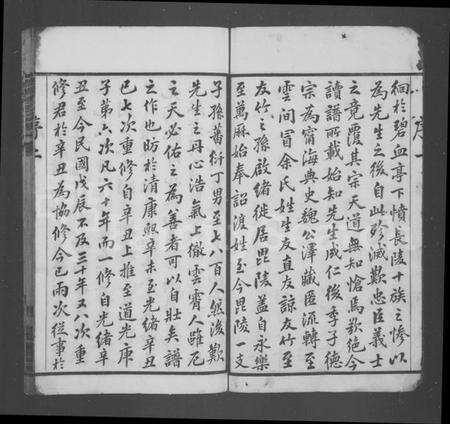 徊於碧血亭下憤長陵十族之慘以
為先生之後自此殄滅歎忠臣義士
之竟覆其宗天道無知愴焉欲絕今
讀譜所載始知先生成仁後季子德
宗為甯海典史魏公澤藏匿流轉至
雲間冒余氏姓生友直友諒友竹至
友竹之孫啟緒徙居毘陵蓋自永樂
至萬厤始奉詔復姓至今毘陵一支
子孫蕃衍丁男至七八百人然後歎
先生之丹心浩氣上徹雲霄人雖厄
之天必佑之為善者可以自壯矣譜
之作也昉於清康熙辛未至光緒辛丑
已七次重修自辛丑上推至道光庚
子第六次凡六十年而一修自光緒辛
丑至今民國戊辰不及三十年又八次重
修君於辛丑為協修今已兩次從事於